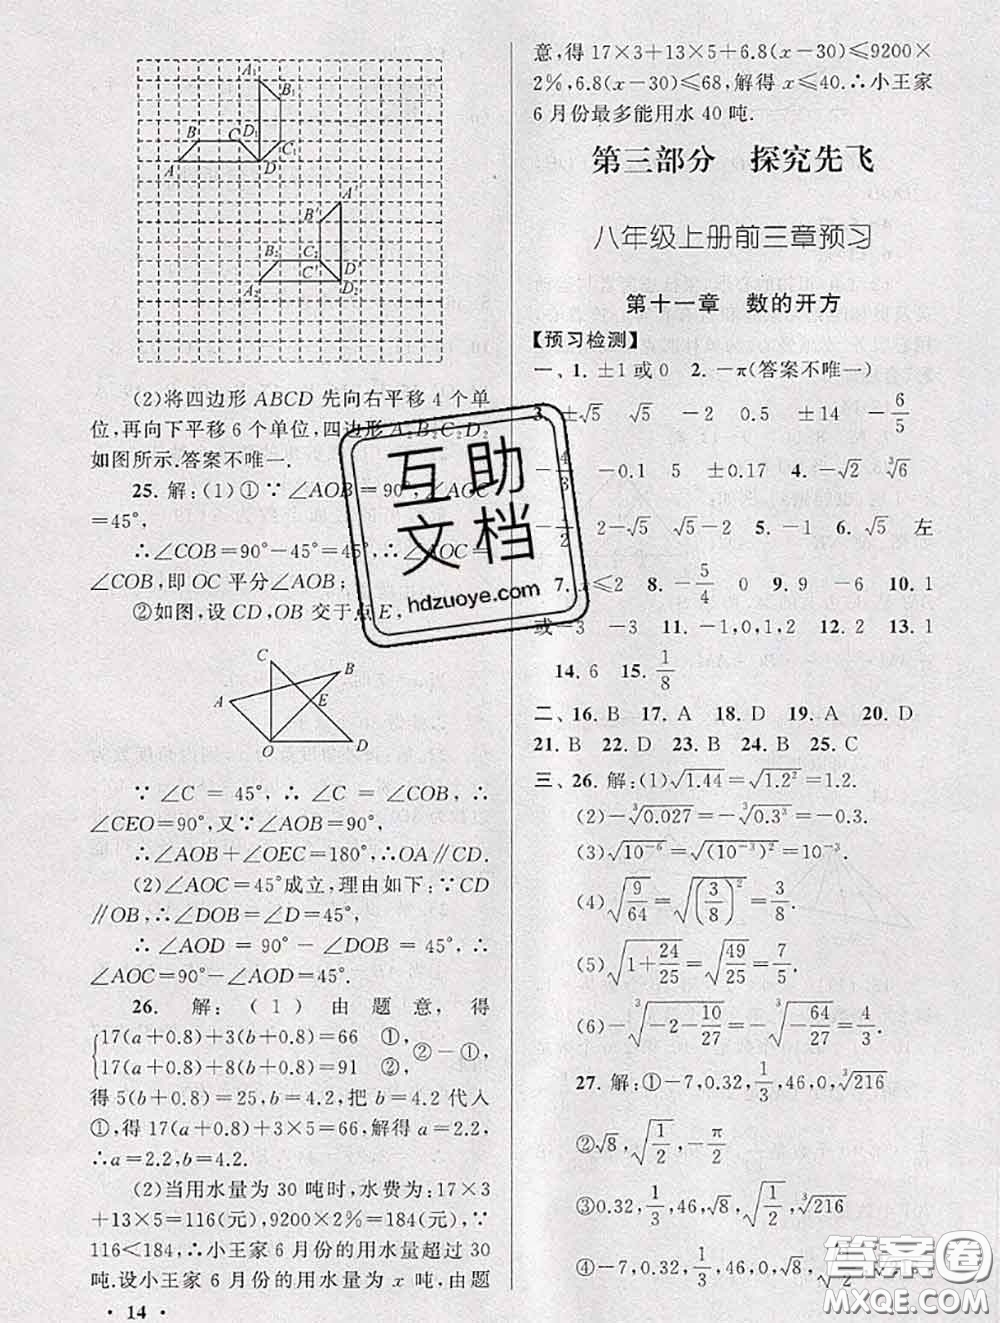 A₁
B₁
B C D₁ C₁
A D
A′
B′
B₂ C₂ C′ D′
A₂ D₂
(2)将四边形 ABCD 先向右平移 4 个单
位,再向下平移 6 个单位,四边形 A₂B₂C₂D₂
如图所示.答案不唯一.
25. 解:(1)①∵∠AOB=90°,∠AOC
=45°,
∴∠COB=90°-45°=45°,∴∠AOC=
∠COB,即 OC 平分∠AOB;
②如图,设 CD,OB 交于点 E,
C
B
A E
O D
∵ ∠C = 45°, ∴ ∠C = ∠COB, ∴
∠CEO=90°,又∵∠AOB=90°,
∴∠AOB+∠OEC=180°,∴OA∥CD.
(2)∠AOC=45°成立,理由如下:∵CD
∥OB,∴∠DOB=∠D=45°,
∴ ∠AOD = 90° - ∠DOB = 45°, ∴
∠AOC=90°-∠AOD=45°.
26. 解:(1) 由题意,得
{17(a+0.8)+3(b+0.8)=66 ①,
17(a+0.8)+8(b+0.8)=91 ②, ②-①,
得 5(b+0.8)=25,b=4.2,把 b=4.2 代入
①,得 17(a+0.8)+3×5=66,解得 a=2.2,
∴a=2.2,b=4.2.
(2)当用水量为 30 吨时,水费为:17×3
+13×5=116(元),9200×2%=184(元),∵
116<184,∴小王家 6 月份的用水量超过 30
吨.设小王家 6 月份的用水量为 x 吨,由题
· 14 ·
意,得 17×3+13×5+6.8(x-30)≤9200×
2%,6.8(x-30)≤68,解得 x≤40.∴小王家
6 月份最多能用水 40 吨.
第三部分 探究先飞
八年级上册前三章预习
第十一章 数的开方
【预习检测】
一、1. ±1 或 0 2. -π(答案不唯一)
3. ±√5 √5 -2 0.5 ±14 -6/5
-4/3 -0.1 5 ±0.17 4. -√2 ∛6
-1/2 2-√5 √5-2 5. -1 6. √5 左
7. x≤2 8. -5/4 0 9. 9 -6 10. 1
或-3 -3 11. -1,0,1,2 12. 2 13. 1
14. 6 15. 1/8
二、16. B 17. A 18. D 19. A 20. D
21. B 22. D 23. B 24. B 25. C
三、26. 解:(1)√1.44=√1.2²=1.2.
(2)-∛0.027=-∛0.3³=-0.3.
(3)√10⁻⁶=√(10⁻³)²=10⁻³.
(4)√(9/64)=√(3/8)²=3/8.
(5)√(1+24/25)=√(49/25)=7/5.
(6)-∛(-2-10/27)=-∛(-64/27)=4/3.
27. 解:①-7,0.32,1/3,46,0,∛216
②√8,√(1/2),-π/2
③0.32,1/3,46,√8,√(1/2),∛216
④-7,0.32,1/3,46,0
互助
文档
hdzuoye.com
答案圈
MXQE.COM